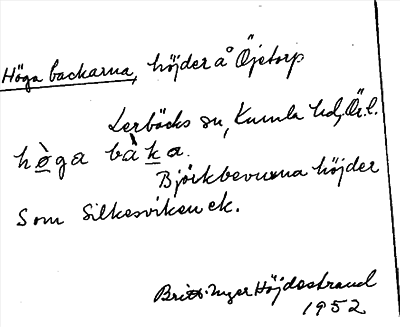 Höga backarna, höjder å Öjetorp
Lerbäcks sn, Kumla hd, Ör.l.
hø̀ga bàka.
Björkbevuxna höjder
Som Silkesviken ek.
Britt-Inger Höjdestrand
1952